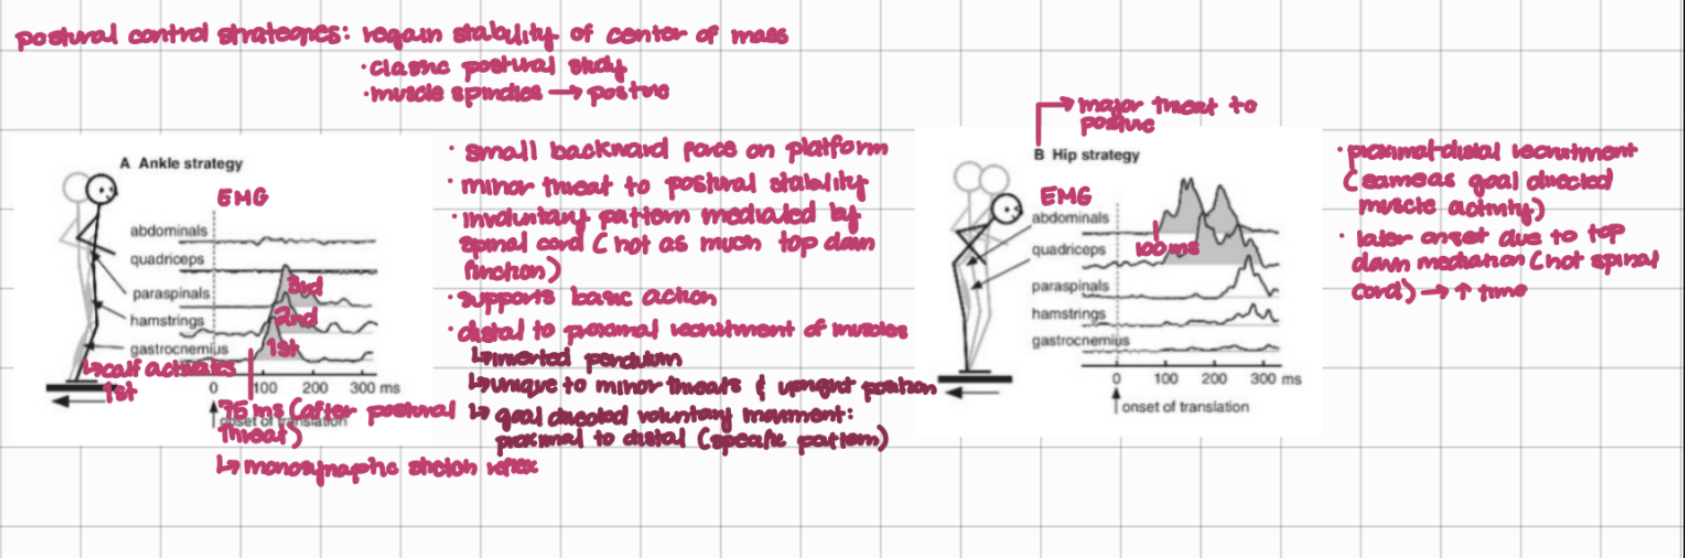 postural control strategies: regain stability of center of mass
· classic postural study
· muscle spindles → posture
A Ankle strategy
EMG
abdominals
quadriceps
paraspinals
hamstrings
gastrocnemius
3rd
2nd
1st
↳ calf activates
1st
0 100 200 300 ms
onset of translation
75 ms (after postural
threat)
↳ monosynaptic stretch reflex
· small backward force on platform
· minor threat to postural stability
· involuntary pattern mediated by
spinal cord (not as much top down
function)
· supports basic action
· distal to proximal recruitment of muscles
↳ inverted pendulum
↳ unique to minor threats & upright position
↳ goal directed voluntary movement:
proximal to distal (specific pattern)
→ major threat to
posture
B Hip strategy
EMG
abdominals
quadriceps
paraspinals
hamstrings
gastrocnemius
100 ms
0 100 200 300 ms
onset of translation
· proximal-distal recruitment
(same as goal directed
muscle activity)
· later onset due to top
down mediation (not spinal
cord) → ↑ time